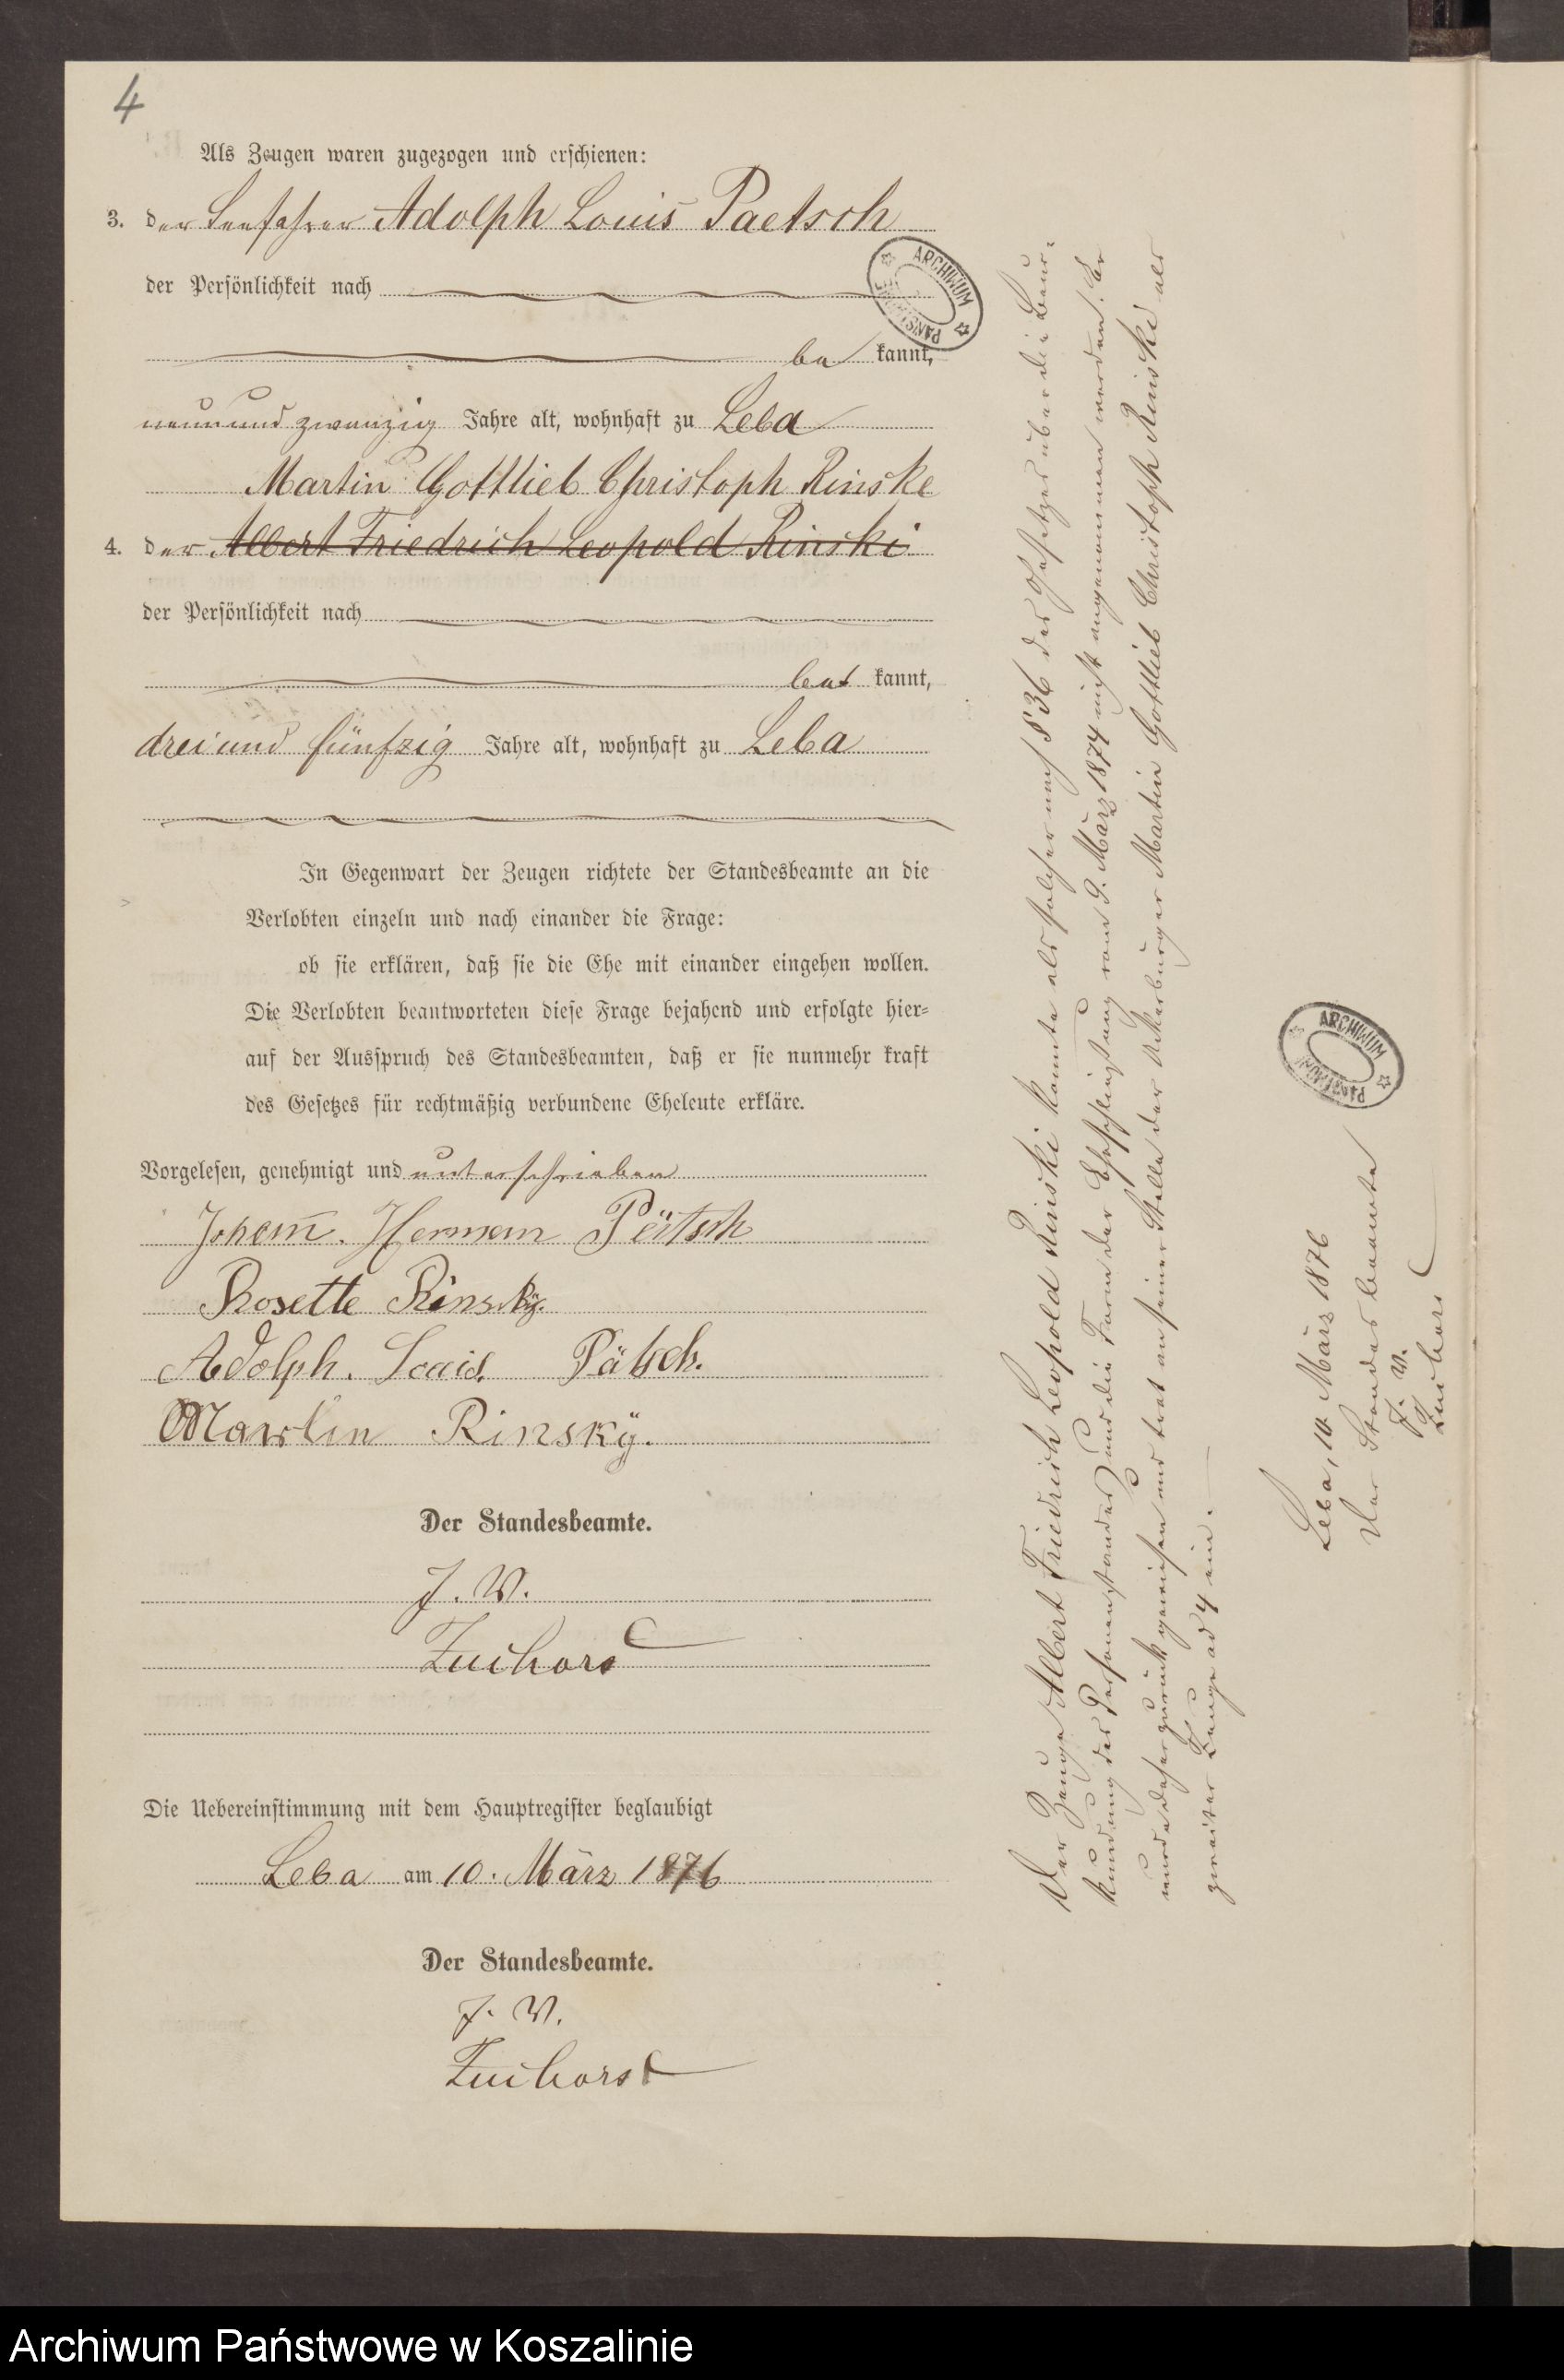 4
Als Zeugen waren zugezogen und erschienen:
3. der Seefahrer Adolph Louis Paetsch
der Persönlichkeit nach
be kannt,
neunund zwanzig Jahre alt, wohnhaft zu Leba
Martin Gottlieb Christoph Rinske
4. der Albert Friedrich Leopold Rinski
der Persönlichkeit nach
kannt,
drei und fünfzig Jahre alt, wohnhaft zu Leba
In Gegenwart der Zeugen richtete der Standesbeamte an die
Verlobten einzeln und nach einander die Frage:
ob sie erklären, daß sie die Ehe mit einander eingehen wollen.
Die Verlobten beantworteten diese Frage bejahend und erfolgte hier-
auf der Ausspruch des Standesbeamten, daß er sie nunmehr kraft
des Gesetzes für rechtmäßig verbundene Eheleute erkläre.
Vorgelesen, genehmigt und unterschrieben
Herman Pëitsch
Rosette Rinsky.
Adolph. Louis. Pätsch.
Martin Rinskÿ.
Der Standesbeamte.
J. V.
Die Uebereinstimmung mit dem Hauptregister beglaubigt
Leba am 10. März 1876
Der Standesbeamte.
J. V.
Der Zeuge Albert Friedrich Leopold Rinski konnte als solcher nach § 36 des Gesetzes über die Beur-
kundung des Personenstandes und die Form der Eheschließung vom 9. März 1874 nicht angenommen werden. Er
wurde daher zurück gewiesen und trat an seiner Stelle der Ackerbürger Martin Gottlieb Christoph Rinski als
zweiter Zeuge ad 4 ein.
Leba, 10 März 1876
Der Standesbeamte
J. V.
ARCHIWUM PAŃSTWOWE
ARCHIWUM PAŃSTWOWE
Archiwum Państwowe w Koszalinie